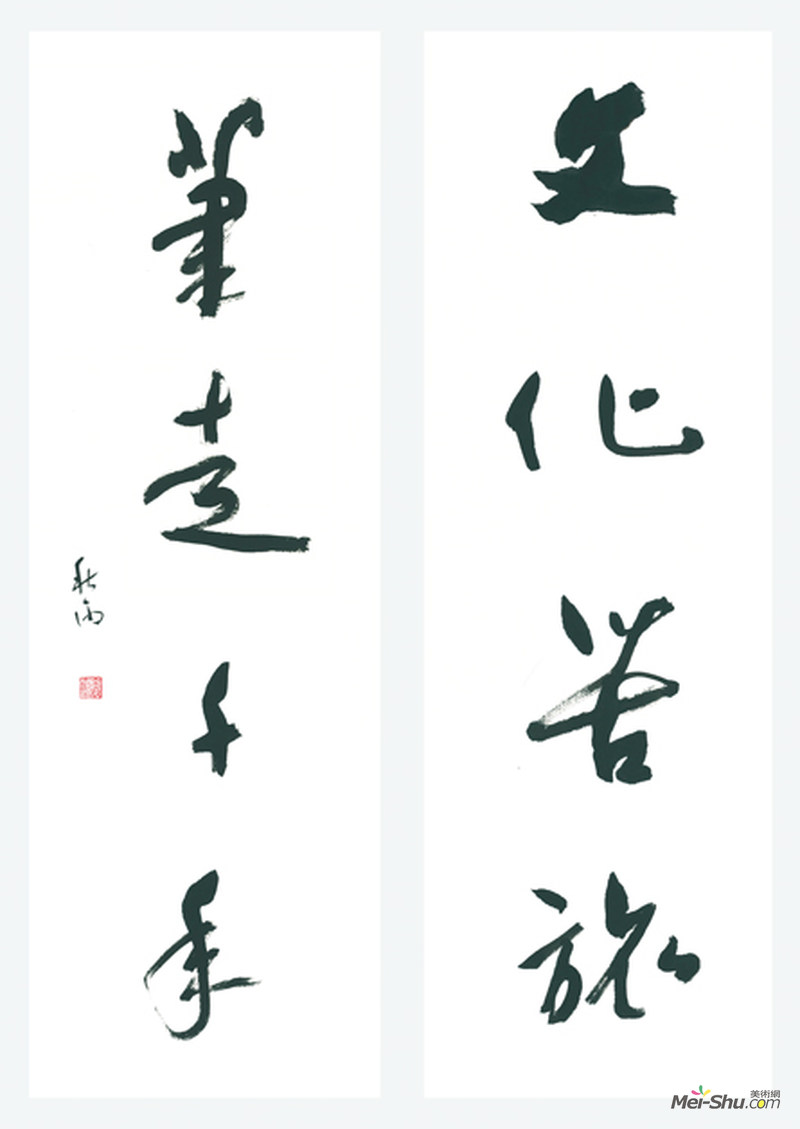 文化苦旅
筆走千年
秋雨
Mei-Shu.com 美術網